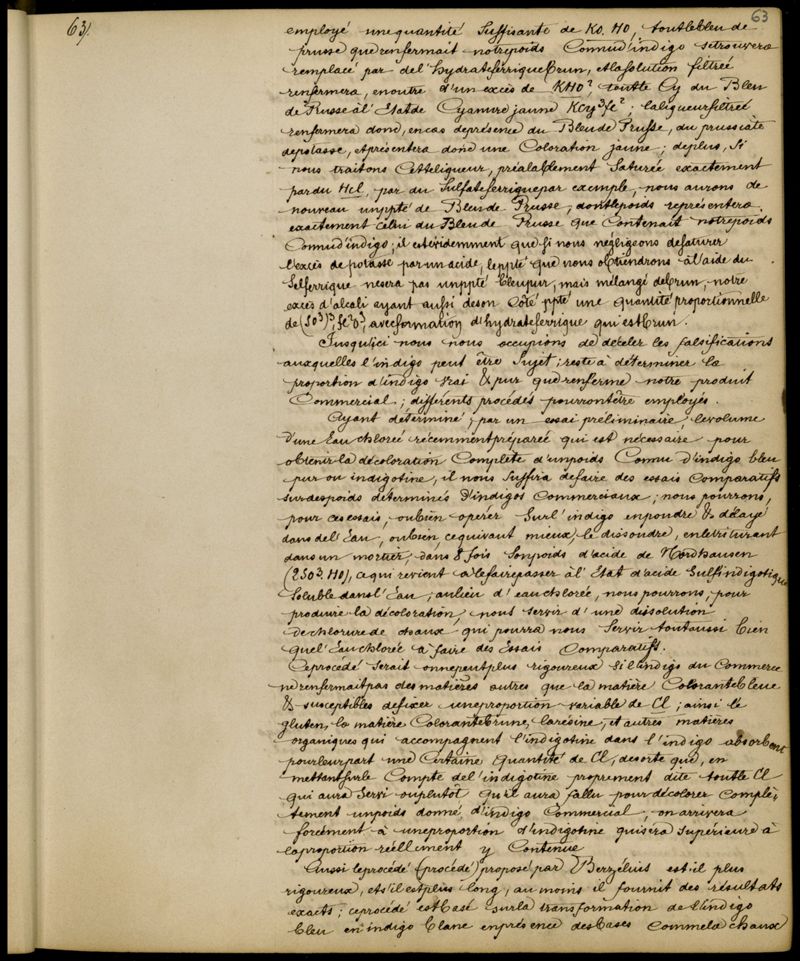 63/.
63
employé une quantité suffisante de KO. HO, tout le bleu de
prusse que renfermait notre poids connu d'indigo se trouvera
remplacé par de l'hydrate ferrique brun, et la solution filtrée
renfermera, en outre d'un excès de KHO², tout le Cy du Bleu
de Prusse à l'Etat de Cyanure jaune KCy³fe²; la liqueur filtrée
renfermera donc, en cas de présence du Bleu de Prusse, du prussiate
de potasse, et présentera donc une Coloration jaune; de plus, si
nous traitons cette liqueur, préalablement saturée exactement
par du Hcl, par du Sulfate ferrique par exemple, nous aurons de
nouveau un ppté de Bleu de Prusse, dont le poids représentera
exactement celui du Bleu de Prusse que contenait notre poids
Connu d'indigo; il est évidemment que si nous négligeons de saturer
l'excès de potasse par un acide, le ppté que nous obtiendrons à l'aide du
Sel ferrique ne sera pas un ppté bleu pur, mais mélangé de brun, notre
excès d'alcali ayant aussi de son côté ppté une quantité proportionnelle
de (SO³)³, fe²O³, avec formation d'hydrate ferrique qui est brun.
Jusqu'ici nous nous occupions de déceler les falsifications
auxquelles l'indigo peut être sujet; reste à déterminer la
proportion d'indigo vrai & pur que renferme notre produit
Commercial; différents procédés pourront être employés.
Ayant déterminé, par un essai préliminaire, le volume
d'une Eau chlorée récemment préparée qui est nécessaire pour
obtenir la décoloration Complète d'un poids Connu d'indigo bleu
pur ou indigotine, il nous suffira de faire des essais Comparatifs
sur des poids déterminés d'indigos Commerciaux; nous pourrons,
pour ces essais, ou bien opérer sur l'indigo en poudre & délayé
dans de l'Eau, ou bien, ce qui vaut mieux, le dissoudre, en le triturant
dans un mortier, dans 8 fois son poids d'acide de Nordhausen
(2SO³. HO), ce qui revient à le faire passer à l'Etat d'acide Sulfindigotique
soluble dans l'Eau; au lieu d'eau chlorée, nous pourrons, pour
produire la décoloration, nous servir d'une dissolution
de chlorure de chaux qui pourra nous servir tout aussi bien
que l'Eau chlorée à faire des Essais Comparatifs.
Ce procédé serait on ne peut plus rigoureux si l'indigo du Commerce
ne renfermait pas des matières autres que la matière Colorante bleue
& susceptibles de fixer une proportion variable de Cl; ainsi le
gluten, la matière Colorante brune, la résine, et autres matières
organiques qui accompagnent l'indigotine dans l'indigo absorbent
pour leur part une Certaine quantité de Cl, de sorte que, en
mettant sur le Compte de l'indigotine proprement dite tout le Cl
qui aura servi ou plutôt qu'il aura fallu pour décolorer complè-
tement un poids donné d'indigo Commercial, on arrivera
forcément à une proportion d'indigotine qui sera supérieure à
la proportion réellement y Contenue
Aussi le procédé (procédé) proposé par Berzélius est-il plus
rigoureux, et s'il est plus long, au moins il fournit des résultats
exacts; ce procédé est basé sur la transformation de l'indigo
bleu en indigo blanc en présence des bases comme la chaux